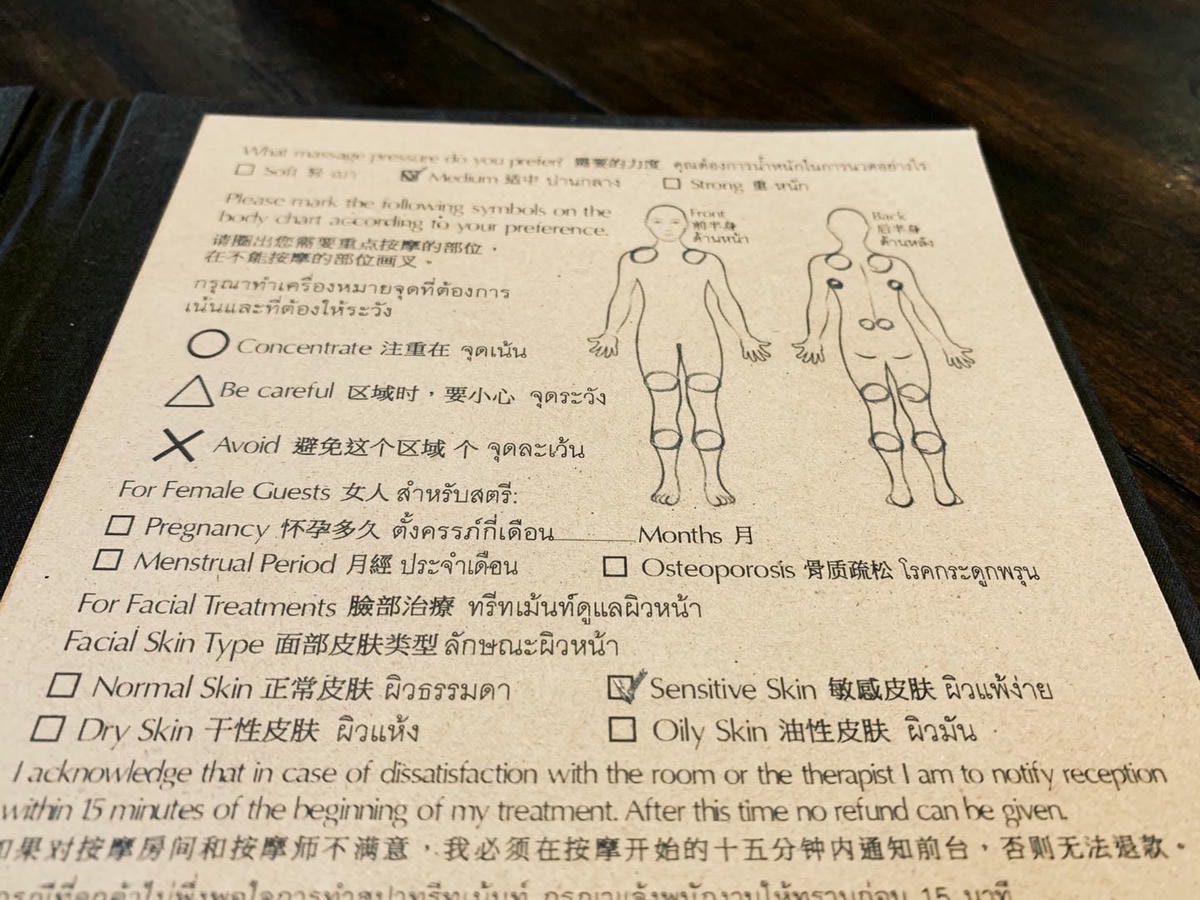 What massage pressure do you prefer? 需要的力度 คุณต้องการน้ำหนักในการนวดอย่างไร
Soft 轻 เบา Medium 适中 ปานกลาง Strong 重 หนัก
Please mark the following symbols on the
body chart according to your preference.
请圈出您需要重点按摩的部位，
在不能按摩的部位画叉。
กรุณาทำเครื่องหมายจุดที่ต้องการ
เน้นและที่ต้องให้ระวัง
Front
前半身
ด้านหน้า
Back
后半身
ด้านหลัง
Concentrate 注重在 จุดเน้น
Be careful 区域时，要小心 จุดระวัง
Avoid 避免这个区域 个 จุดละเว้น
For Female Guests 女人 สำหรับสตรี:
Pregnancy 怀孕多久 ตั้งครรภ์กี่เดือน Months 月
Menstrual Period 月經 ประจำเดือน Osteoporosis 骨质疏松 โรคกระดูกพรุน
For Facial Treatments 臉部治療 ทรีทเม้นท์ดูแลผิวหน้า
Facial Skin Type 面部皮肤类型 ลักษณะผิวหน้า
Normal Skin 正常皮肤 ผิวธรรมดา Sensitive Skin 敏感皮肤 ผิวแพ้ง่าย
Dry Skin 干性皮肤 ผิวแห้ง Oily Skin 油性皮肤 ผิวมัน
I acknowledge that in case of dissatisfaction with the room or the therapist I am to notify reception
within 15 minutes of the beginning of my treatment. After this time no refund can be given.
如果对按摩房间和按摩师不满意，我必须在按摩开始的十五分钟内通知前台，否则无法退款。
กรณีที่ลูกค้าไม่พึงพอใจการทำสปาทรีทเม้นท์ กรุณาแจ้งพนักงานให้ทราบก่อน 15 นาที